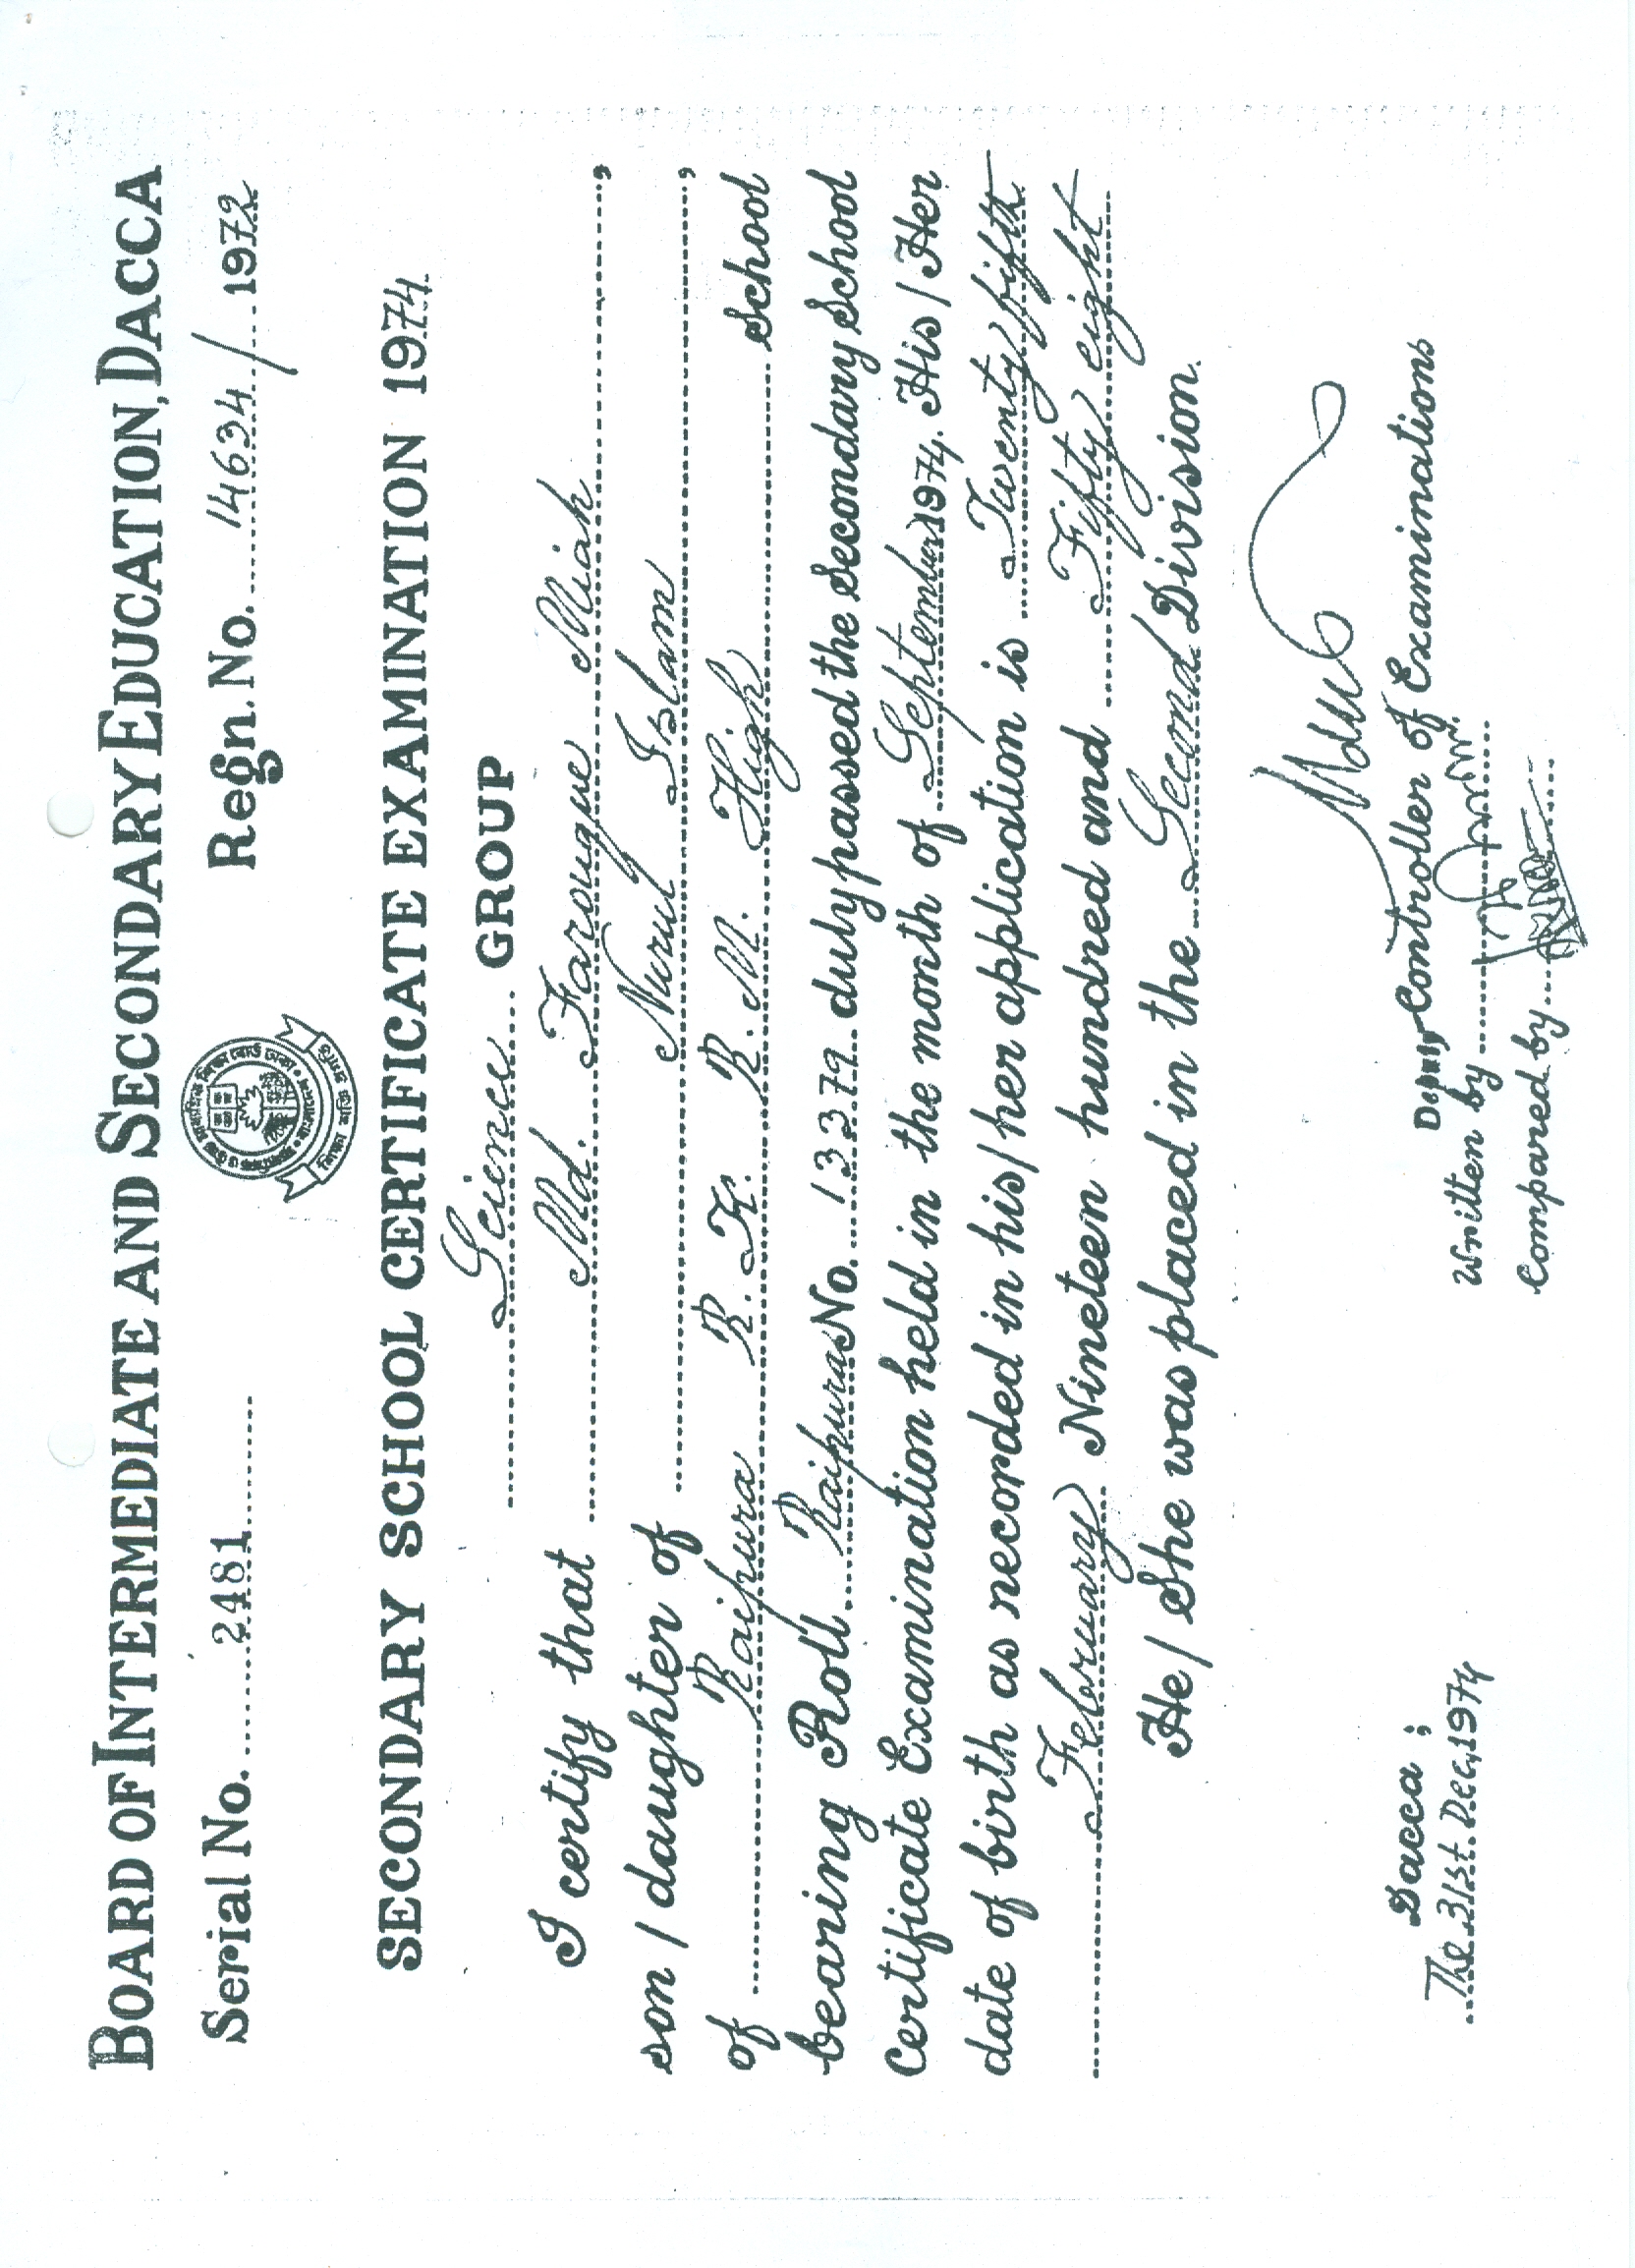 BOARD OF INTERMEDIATE AND SECONDARY EDUCATION, DACCA
Serial No. 2481 Regn. No. 14634/1972
SECONDARY SCHOOL CERTIFICATE EXAMINATION 1974
Science GROUP
I certify that Md. Farouque Miah,
son / daughter of Nurul Islam,
of Raipura R. K. R. M. High School
bearing Roll Raipura No. 13379 duly passed the Secondary School
Certificate Examination held in the month of September 1974. His / Her
date of birth as recorded in his / her application is Twenty fifth
February Nineteen hundred and Fifty eight
He / She was placed in the Second Division.
Deputy Controller of Examinations
Dacca ;
The 31st. Dec, 1974
Written by
Compared by